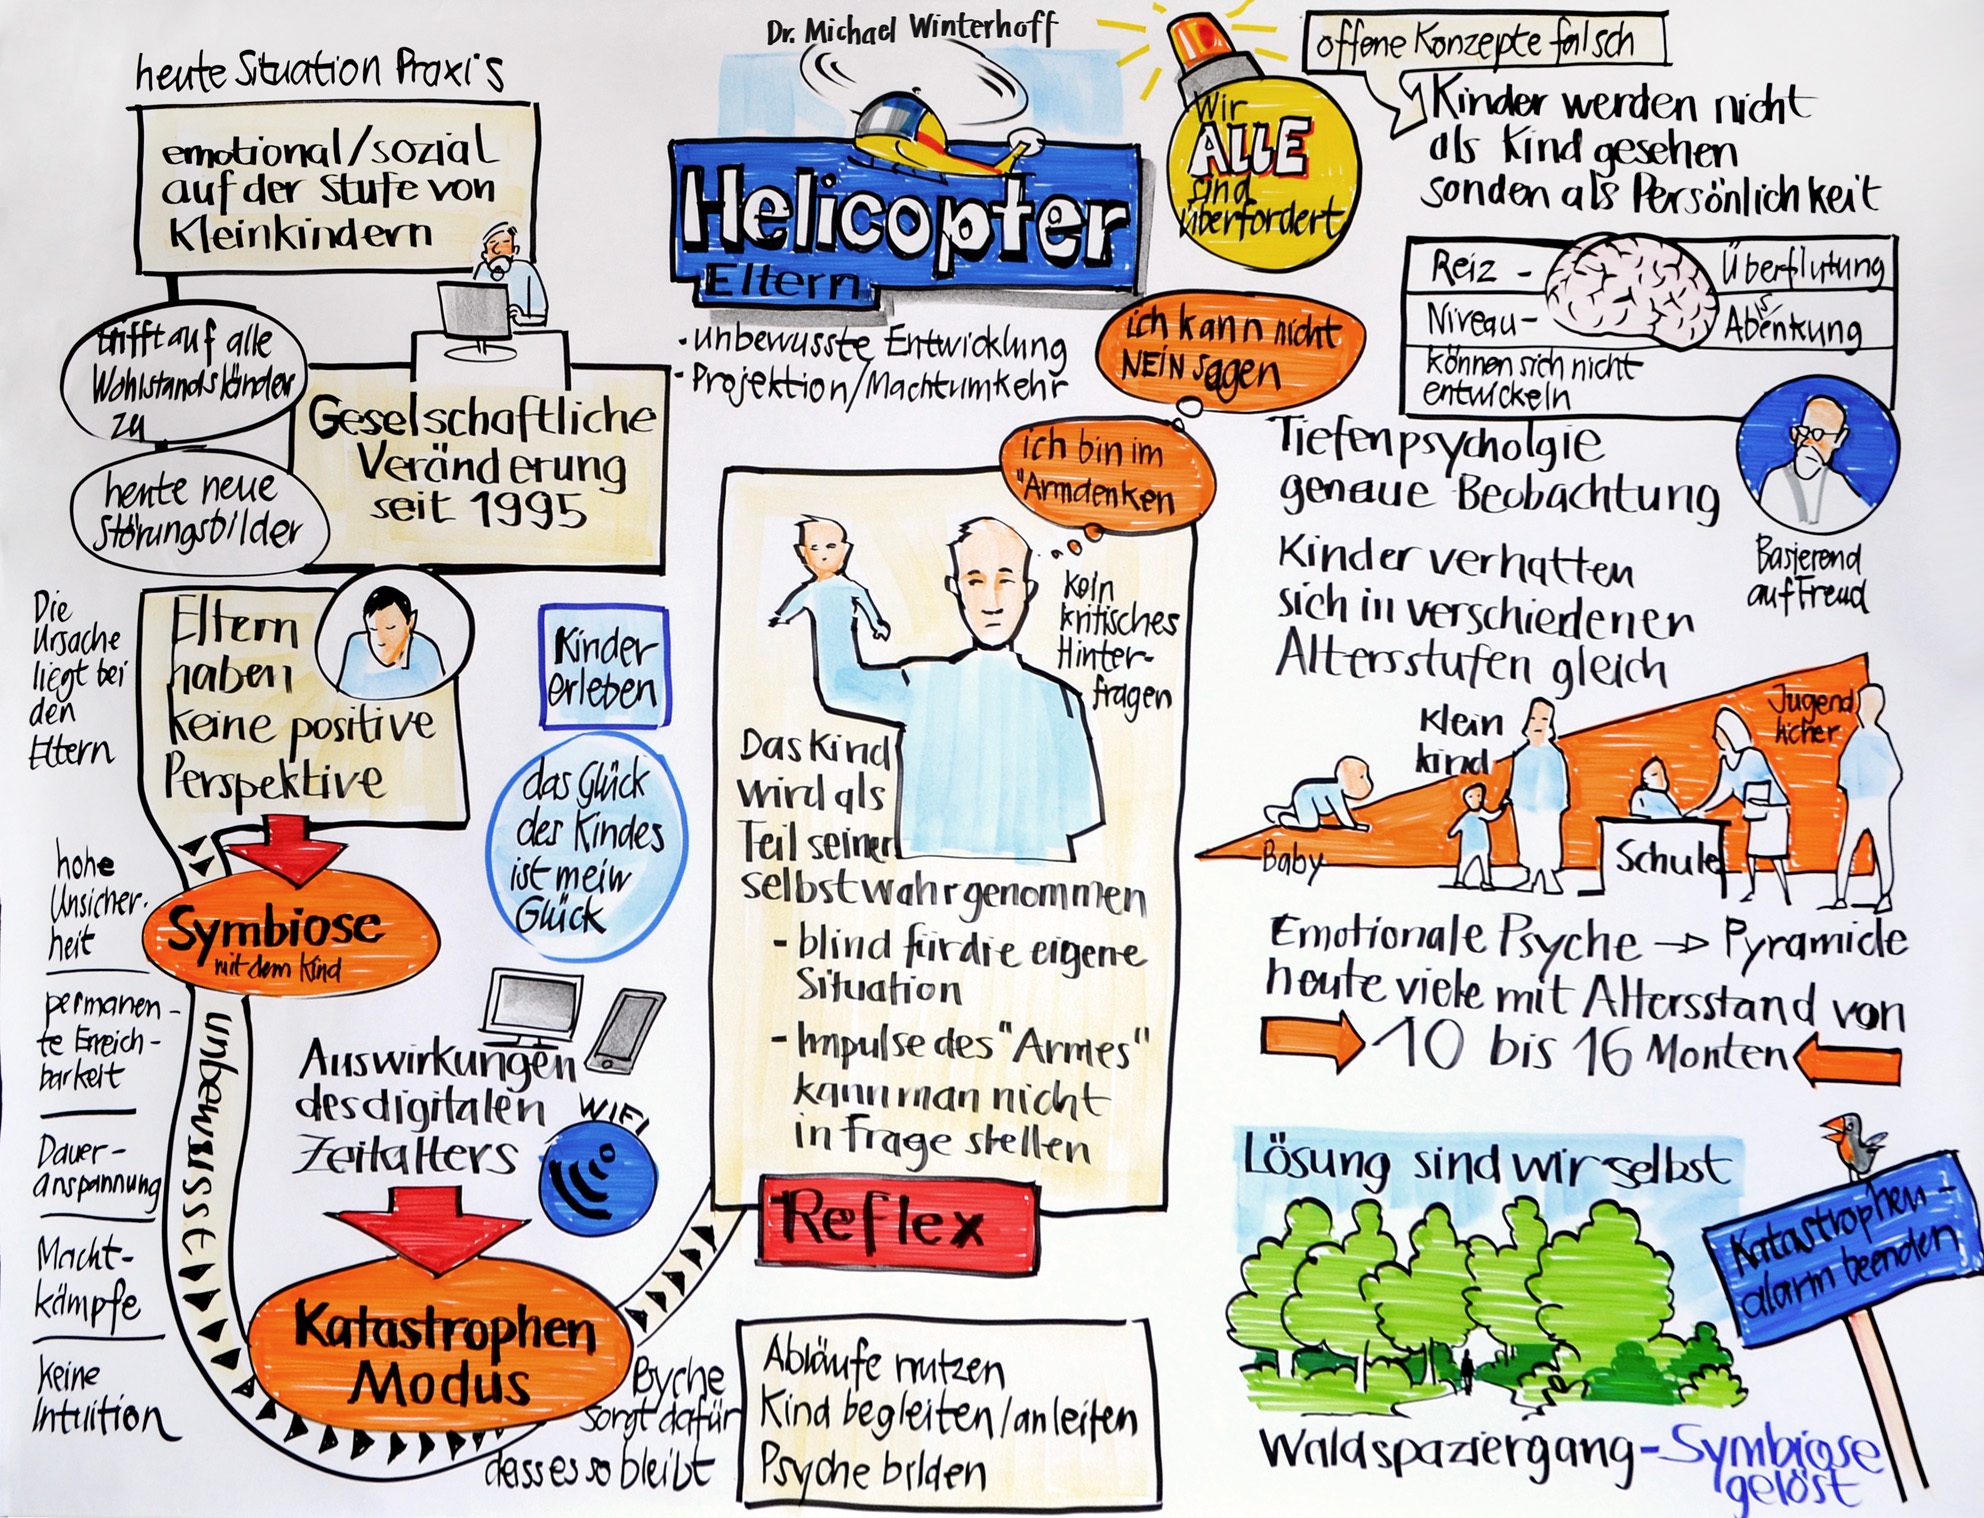 Dr. Michael Winterhoff
Helicopter
Eltern
- unbewusste Entwicklung
- Projektion/Machtumkehr
heute Situation Praxis
emotional/sozial
auf der Stufe von
Kleinkindern
trifft auf alle
Wohlstandsländer
zu
heute neue
Störungsbilder
Geselschaftliche
Veränderung
seit 1995
Die
Ursache
liegt bei
den
Eltern
Eltern
haben
keine positive
Perspektive
hohe
Unsicher-
heit
Symbiose
mit dem Kind
permanen-
te Erreich-
barkeit
Dauer-
anspannung
Macht-
kämpfe
keine
Intuition
unbewusst
Kinder
erleben
das Glück
des Kindes
ist mein
Glück
Auswirkungen
des digitalen
Zeitalters
WIFI
Katastrophen
Modus
Psyche
sorgt dafür
dass es so bleibt
ich kann nicht
NEIN sagen
ich bin im
"Armdenken
Kein
kritisches
Hinter-
fragen
Das Kind
wird als
Teil seiner
selbst wahrgenommen
- blind für die eigene
Situation
- Impulse des "Armes"
kann man nicht
in Frage stellen
Reflex
Abläufe nutzen
Kind begleiten/anleiten
Psyche bilden
Wir
ALLE
sind
überfordert
offene Konzepte falsch
Kinder werden nicht
als Kind gesehen
sonden als Persönlichkeit
Reiz - Überflutung
Niveau - Absenkung
können sich nicht
entwickeln
Tiefenpsycholgie
genaue Beobachtung
Basierend
auf Freud
Kinder verhatten
sich in verschiedenen
Altersstufen gleich
Baby
Klein
kind
Schule
Jugend
licher
Emotionale Psyche → Pyramide
heute viele mit Altersstand von
10 bis 16 Monten
Lösung sind wir selbst
Katastrophen-
alarm beenden
Waldspaziergang - Symbiose
gelöst